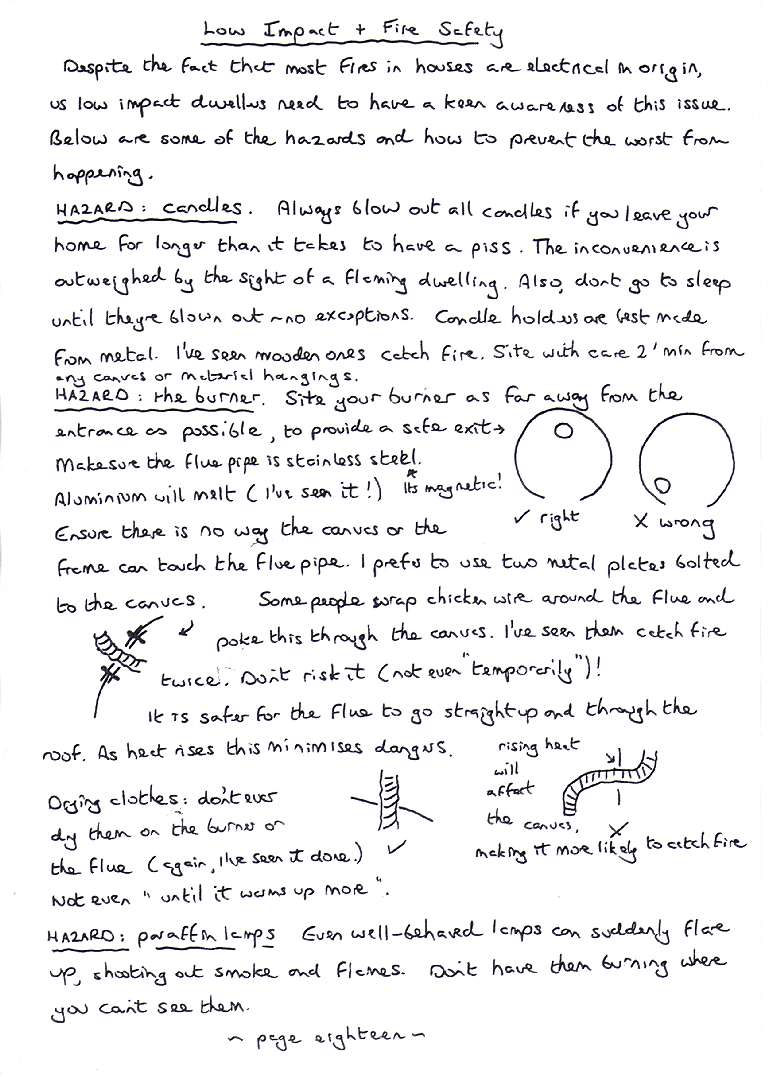 Low Impact + Fire Safety
Despite the fact that most fires in houses are electrical in origin,
us low impact dwellers need to have a keen awareness of this issue.
Below are some of the hazards and how to prevent the worst from
happening.
HAZARD: candles. Always blow out all candles if you leave your
home for longer than it takes to have a piss. The inconvenience is
outweighed by the sight of a flaming dwelling. Also, dont go to sleep
until theyre blown out ~ no exceptions. Candle holders are best made
from metal. I've seen wooden ones catch fire. Site with care 2' min from
any canvas or material hangings.
HAZARD: the burner. Site your burner as far away from the
entrance as possible, to provide a safe exit →
Make sure the flue pipe is stainless steel.
Aluminium will melt (I've seen it!) Its magnetic!
✓ right
X wrong
Ensure there is no way the canvas or the
frame can touch the flue pipe. I prefer to use two metal plates bolted
to the canvas. Some people wrap chicken wire around the flue and
poke this through the canvas. I've seen them catch fire
twice. Don't risk it (not even "temporarily")!
It is safer for the flue to go straight up and through the
roof. As heat rises this minimises dangers.
rising heat
will
affect
the canvas,
making it more likely to catch fire
Drying clothes: don't ever
dry them on the burner or
the flue (again, I've seen it done.)
Not even "until it warms up more".
HAZARD: paraffin lamps Even well-behaved lamps can suddenly flare
up, shooting out smoke and flames. Don't have them burning where
you can't see them.
~ page eighteen ~